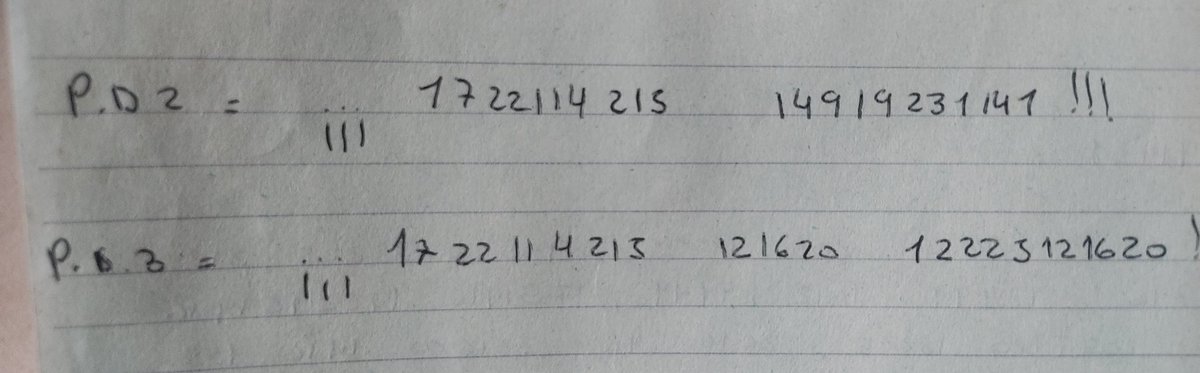 P.D 2 = ¡¡¡ 1722114215 14919231141 !!!
P.D.3 = ¡¡¡ 1722114215 121620 12225121620 !